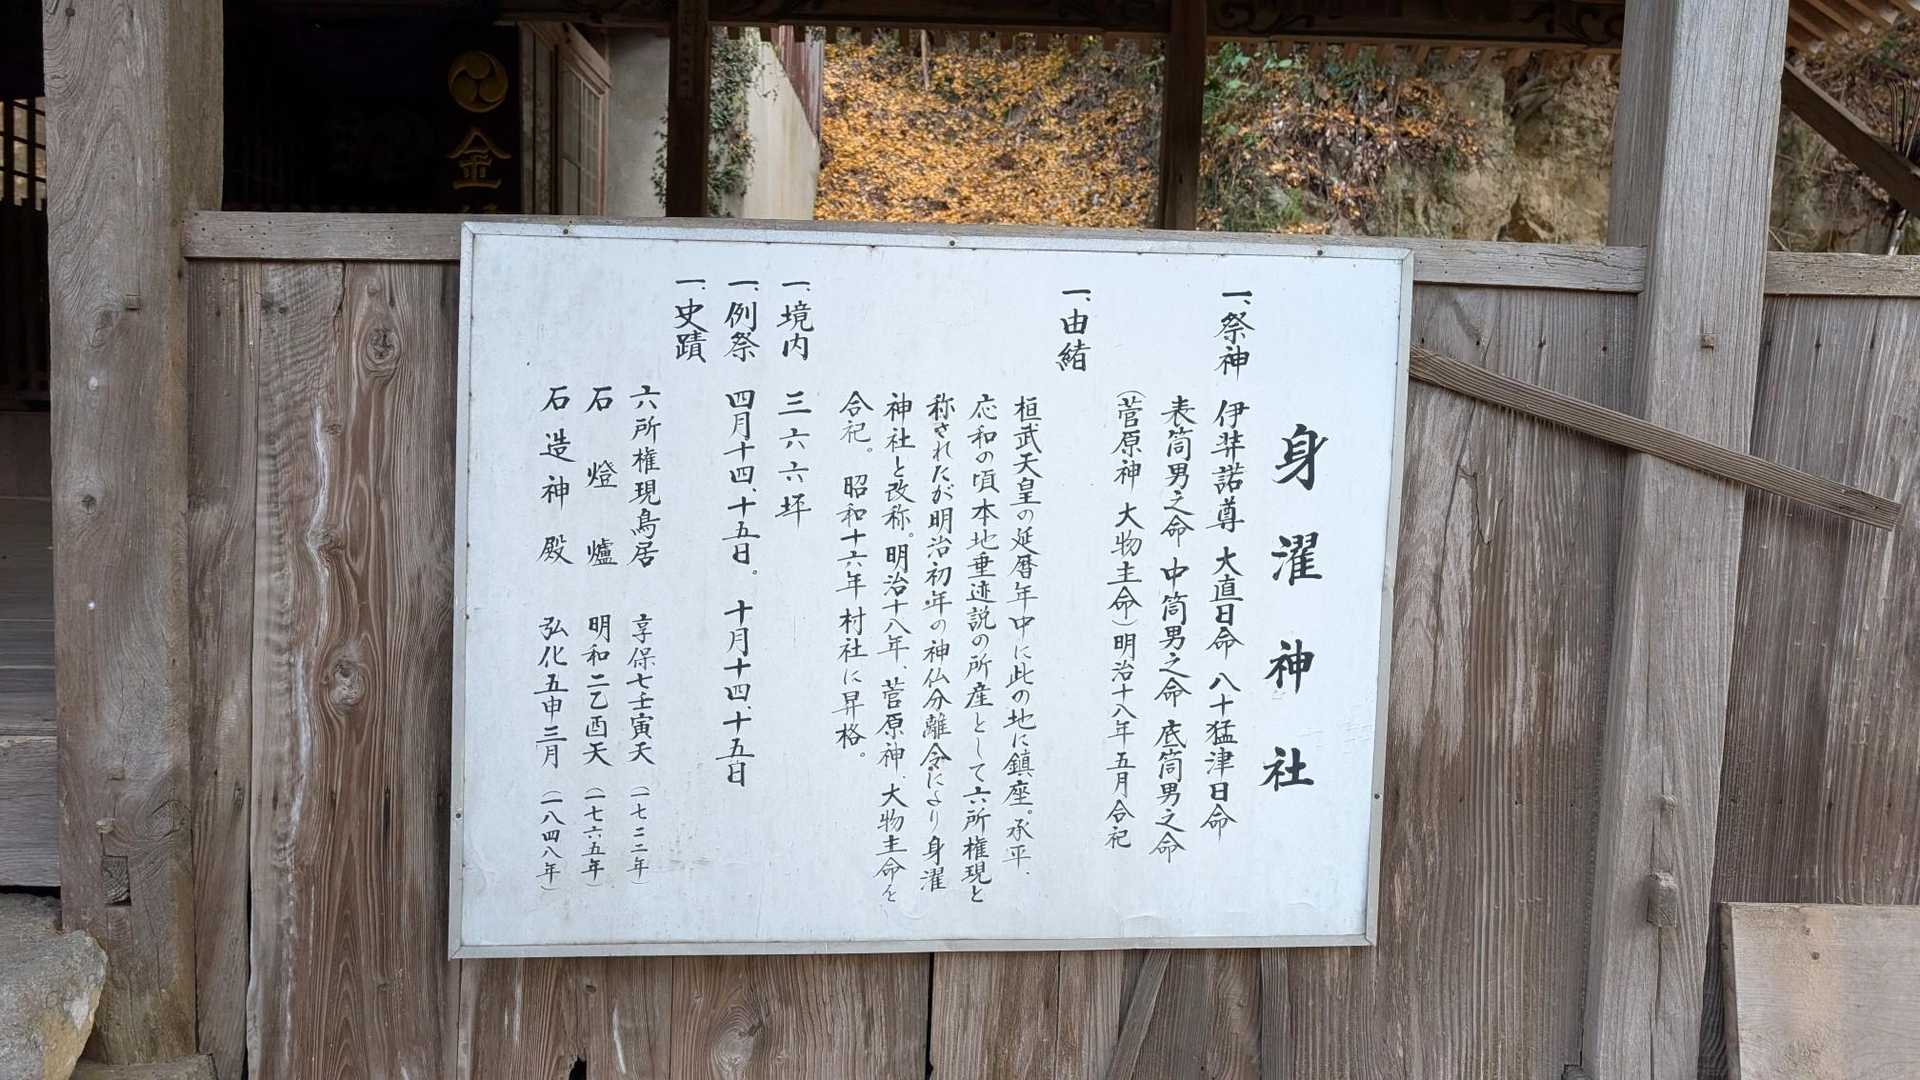 身濯神社
一、祭神 伊弉諾尊 大直日命 八十猛津日命
表筒男之命 中筒男之命 底筒男之命
(菅原神 大物主命)明治十八年五月合祀
一、由緒
桓武天皇の延暦年中に此の地に鎮座。承平、
応和の頃本地垂迹説の所産として六所権現と
称されたが明治初年の神仏分離令により身濯
神社と改称。明治十八年、菅原神、大物主命を
合祀。昭和十六年村社に昇格。
一、境内 三六六坪
一、例祭 四月十四、十五日。十月十四、十五日
一、史蹟
六所権現鳥居 享保七壬寅天(一七二二年)
石燈爐 明和二乙酉天(一七六五年)
石造神殿 弘化五申三月(一八四八年)
金